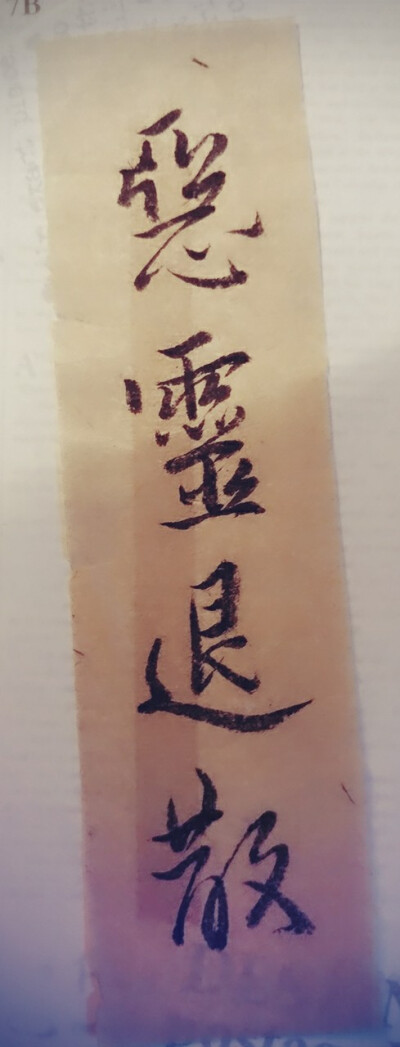 惡靈退散
7B